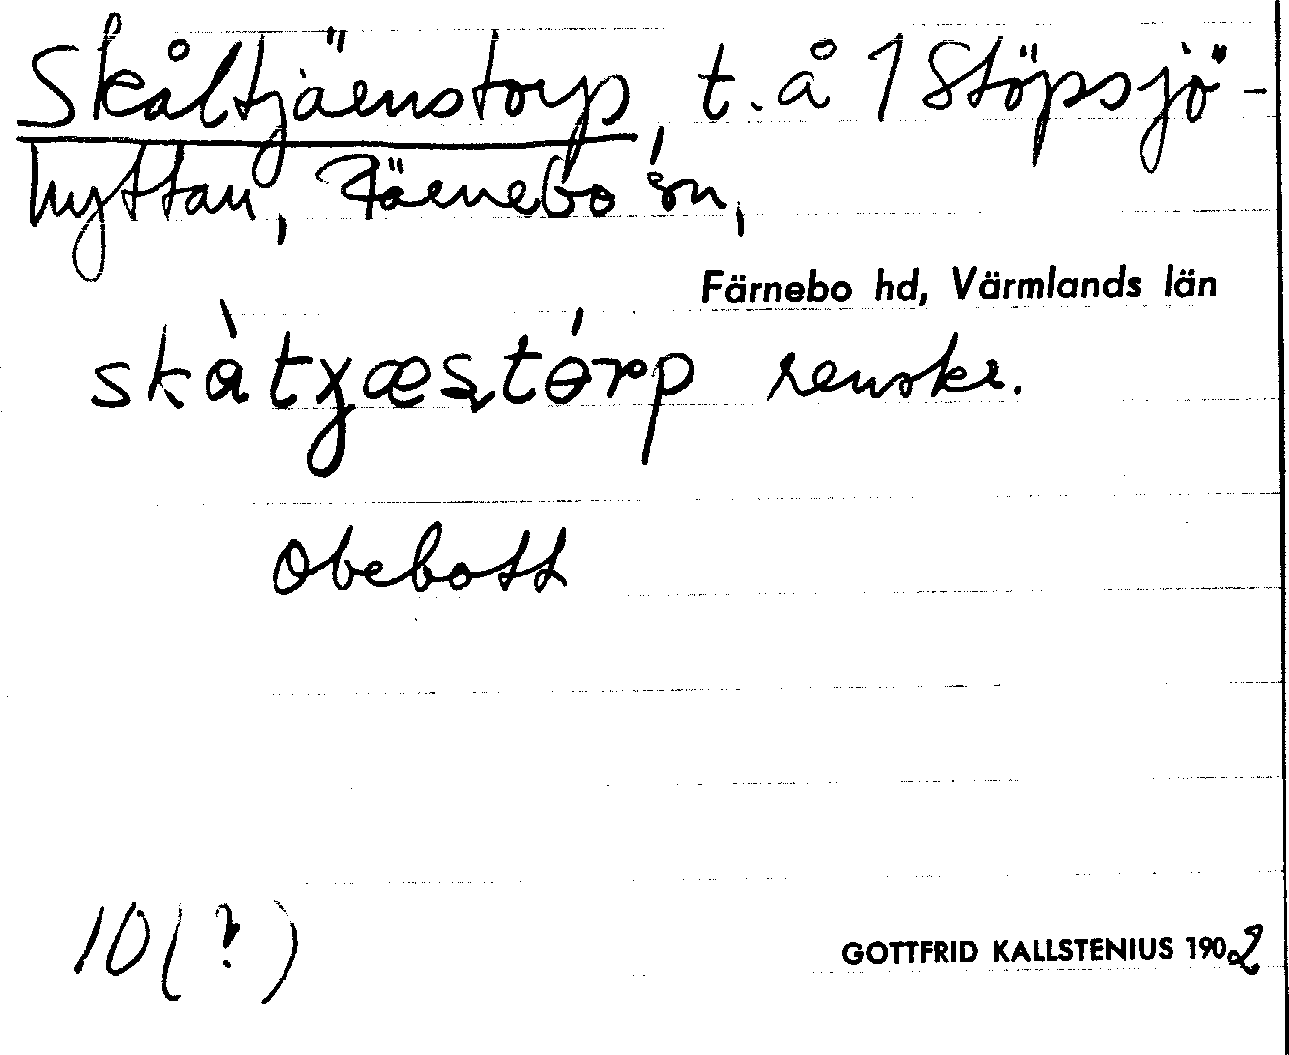 Skåltjärnstorp, t. å 1 Stöpsjö-
hyttan, Färnebo sn,
Färnebo hd, Värmlands län
skàtȷæştórp renskr.
Obebott
10(?)
GOTTFRID KALLSTENIUS 1902